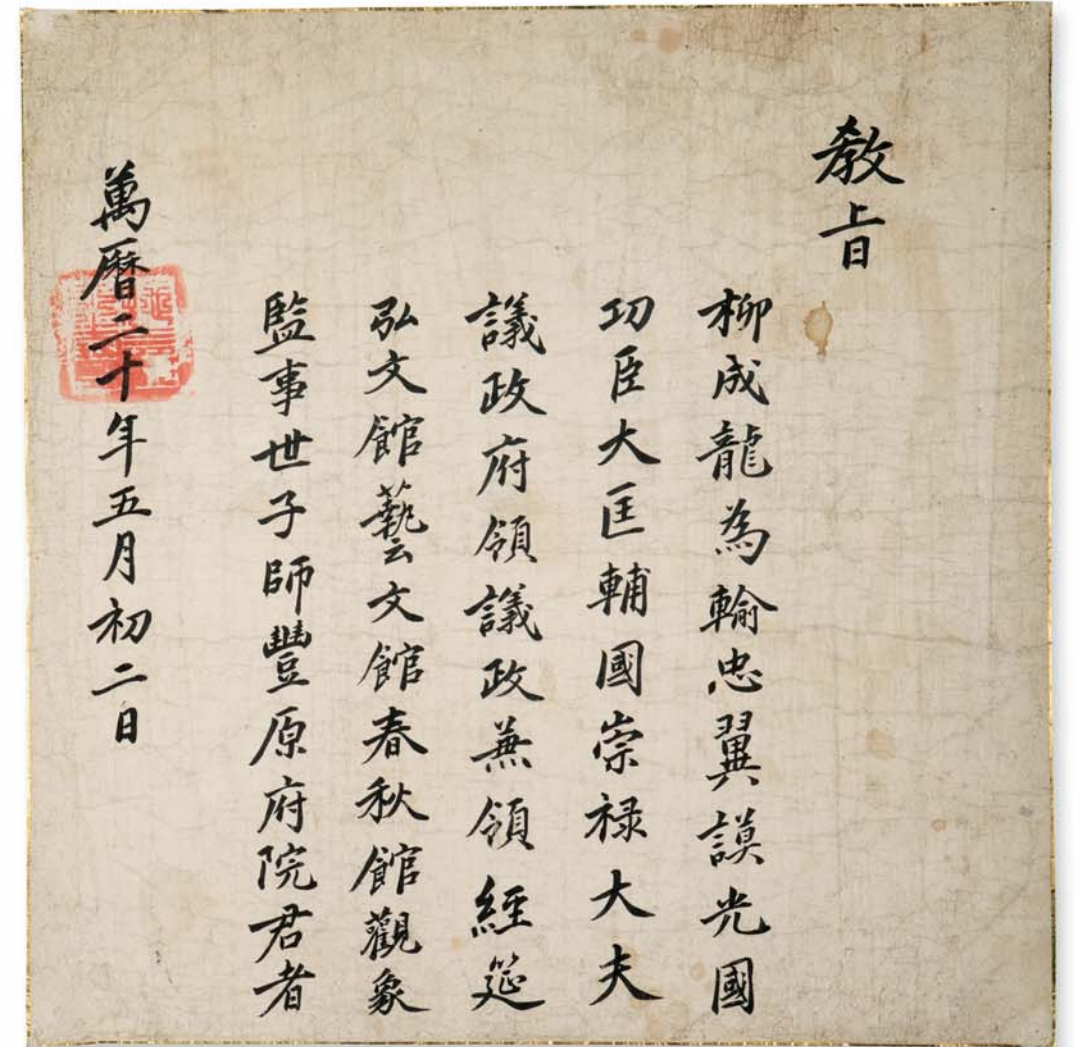 敎旨
柳成龍為輸忠翼謨光國
功臣大匡輔國崇禄大夫
議政府領議政兼領經筵
弘文館藝文館春秋館觀象
監事世子師豐原府院君者
萬曆二十年五月初二日